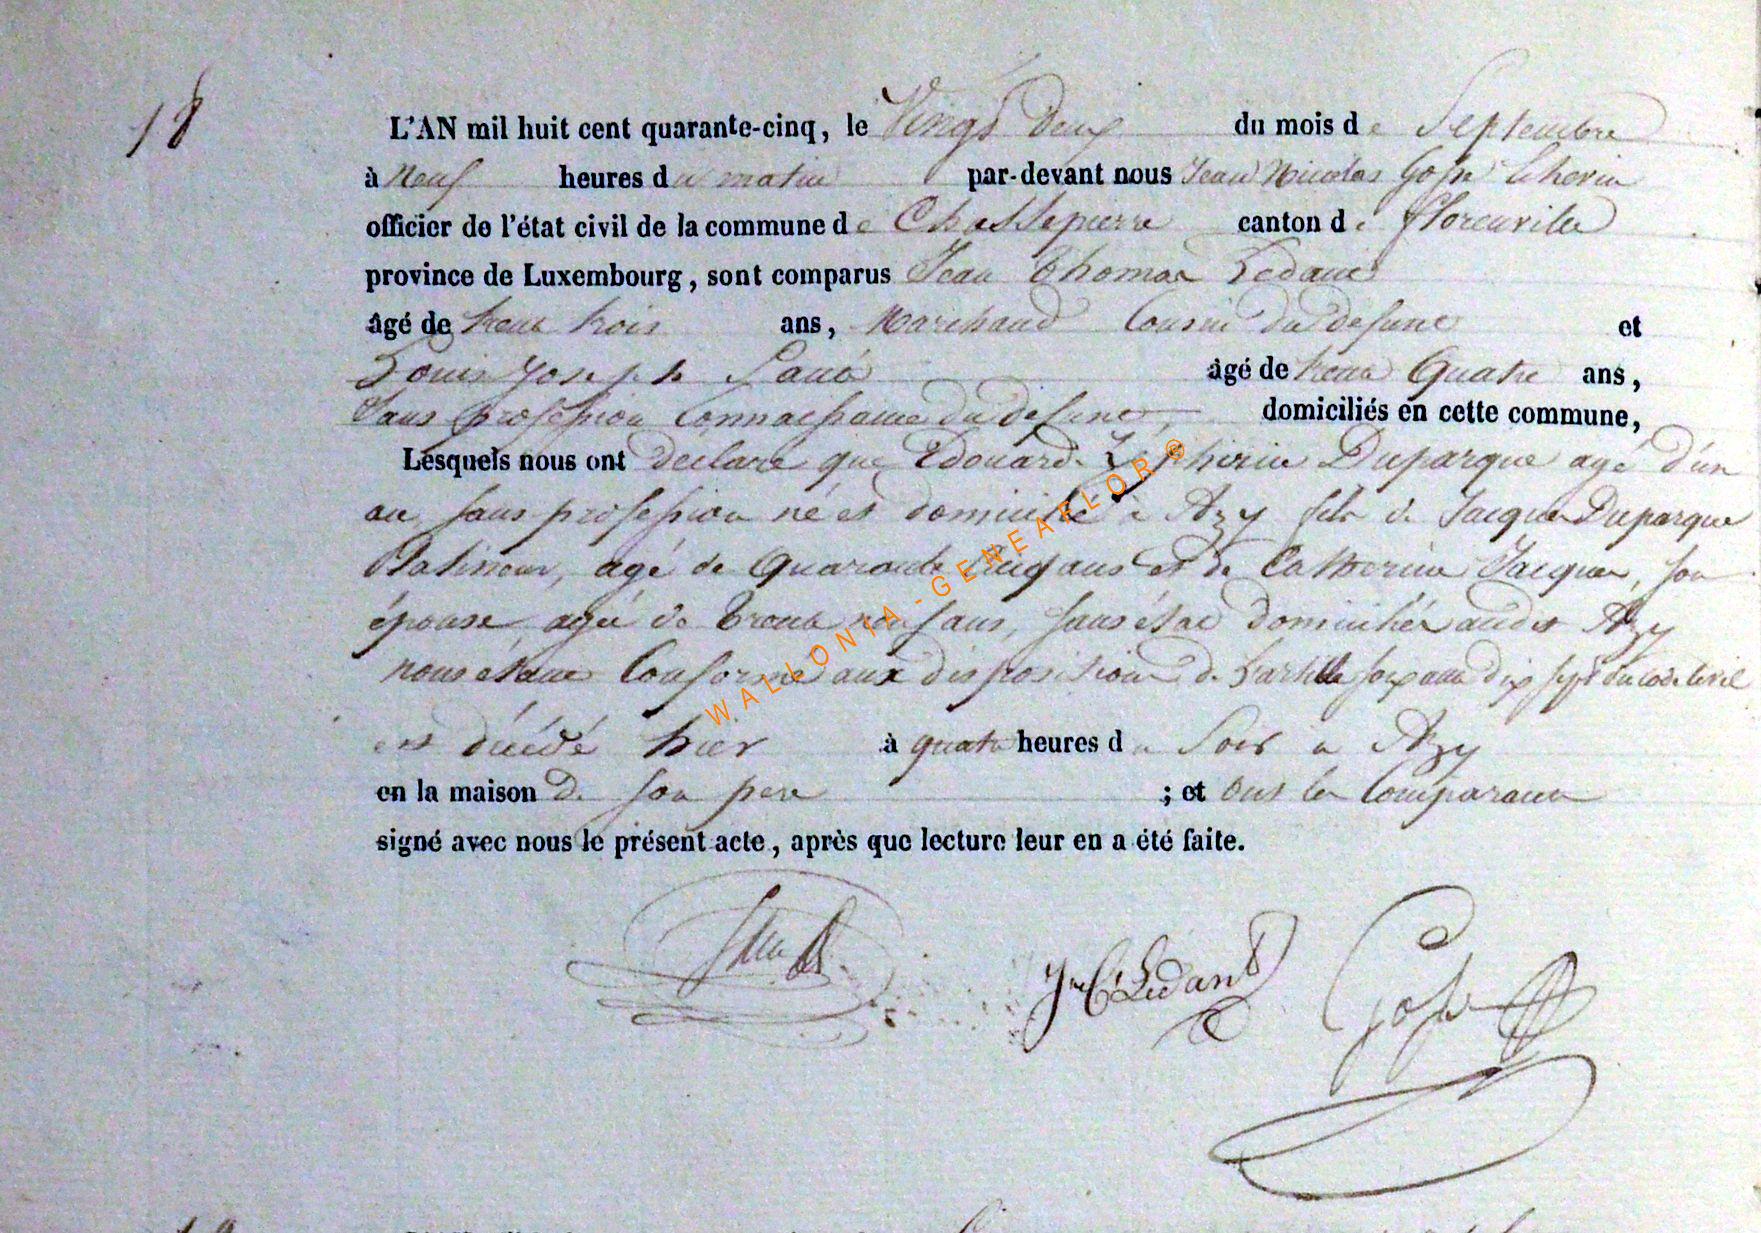 18
L'AN mil huit cent quarante-cinq, le Vingt Deux du mois de Septembre
à Neuf heures du matin par-devant nous Jean Nicolas Gofse Echevin
officier de l'état civil de la commune de Chassepierre canton de florenville
province de Luxembourg, sont comparus Jean Thomas Ledant
âgé de trente trois ans, Marchand Cousin du defunt et
Louis Joseph âgé de trente Quatre ans,
Sans profession Connaissance du defunt, domiciliés en cette commune,
Lesquels nous ont declaré que Edouard Zéphirin Duparque agé d'un
an sans profession né et domicilié à Azy fils de Jacques Duparque
Platineur, agé de Quarante Cinq ans et de Catherine Jacques, son
épouse agée de trente neuf ans, sans état domiciliés audit Azy
nous étant Conformé aux dispositions de L'article soixante dix sept du code Civil
est décédé hier à quatre heures du Soir à Azy
en la maison de son pere ; et ont les Comparants
signé avec nous le présent acte, après que lecture leur en a été faite.
Jn Th Ledant Gofse
WALLONIA-GENEAFLOR®